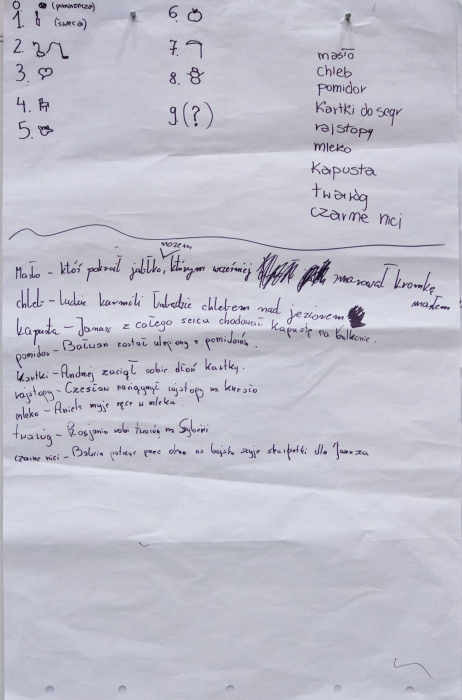 0 (pomarańcza)
1 (świeca)
2.
3.
4.
5.
6.
7.
8.
9 (?)
masło
chleb
pomidor
Kartki do segr
rajstopy
mleko
kapusta
twaróg
czarne nici
nożem
Masło - ktoś pokroił jabłko, którym wcześniej smarował kromkę
masłem
chleb - ludzie karmili łabędzie chlebem nad jeziorem
kapusta - Janusz z całego serca chodował kapustę na balkonie.
pomidor - Bałwan został ulepiony z pomidorów.
Kartki - Andrzej zaciął sobie dłoń kartką.
rajstopy - Czesław naciągnął rajstopy na krzesło
mleko - Aniela myje ręce w mleku.
twaróg - Rosjanin robi twaróg na Syberii
czarne nici - Babcia patrząc przez okno na boisko szyje skarpetki dla Janusza